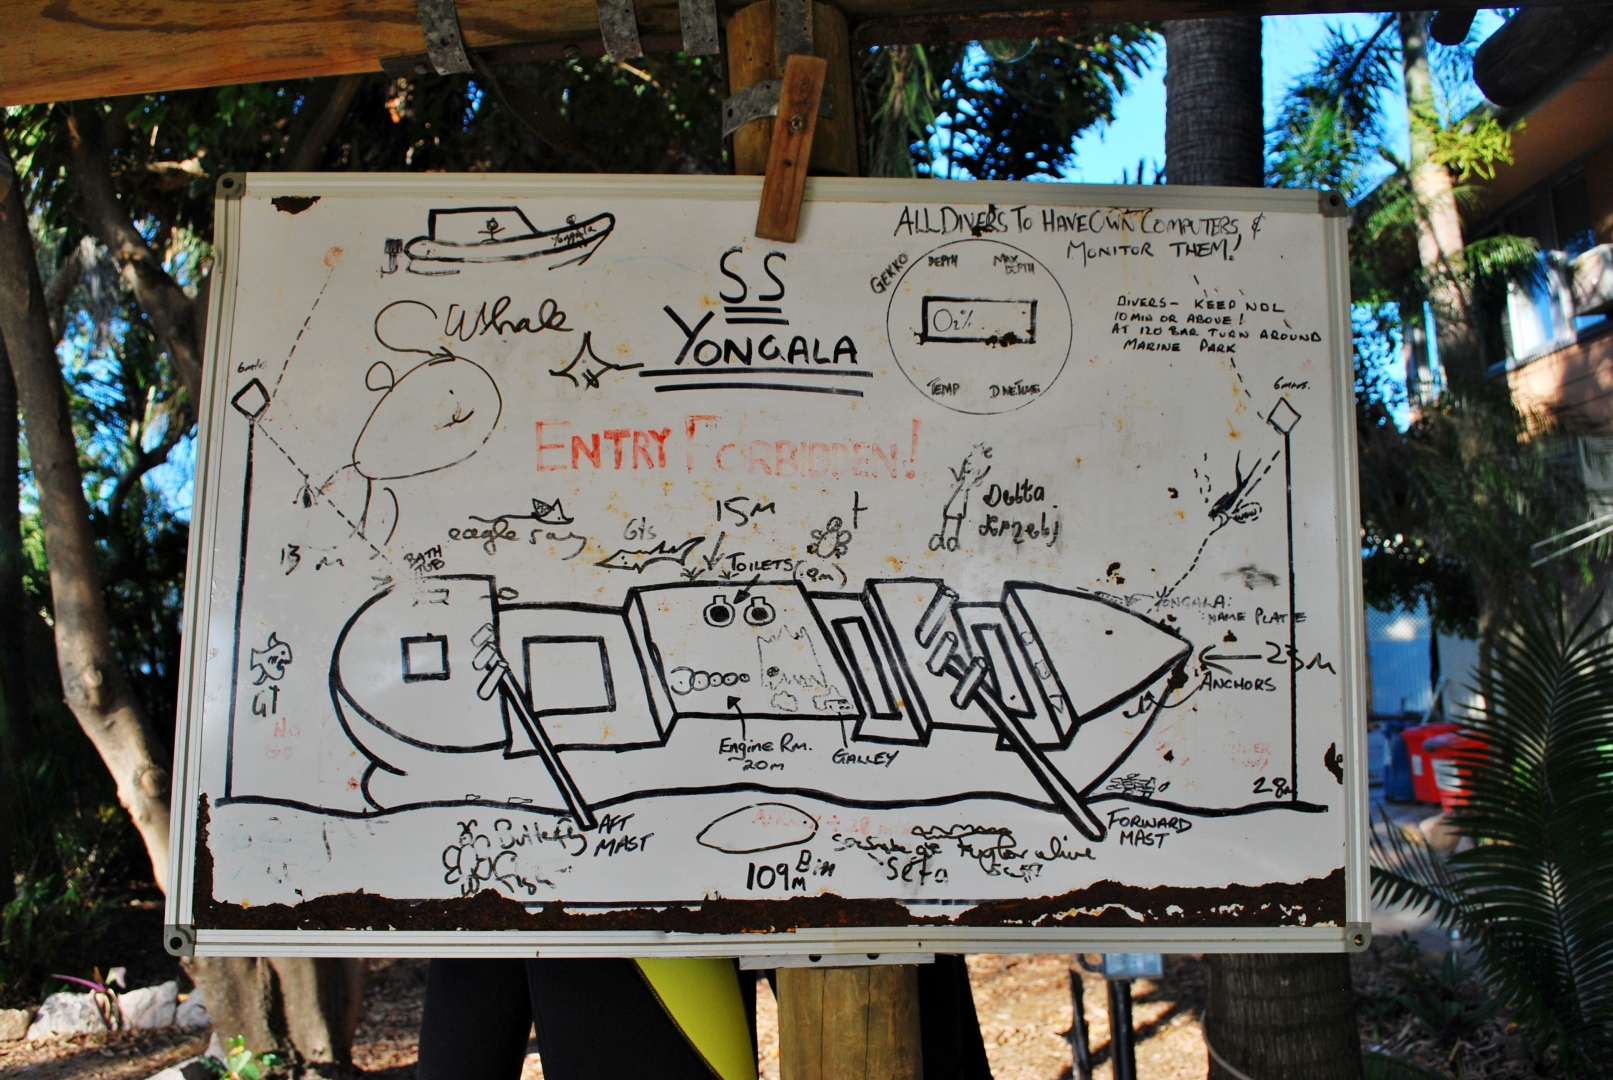 ALL DIVERS TO HAVE OWN COMPUTERS &
MONITOR THEM!
Yongala
SS
YONGALA
Whale
GEKKO
DEPTH
MAX
DEPTH
O2%
TEMP
DIVERS - KEEP NDL
10 MIN OR ABOVE!
AT 120 BAR TURN AROUND
MARINE PARK
6 mins.
ENTRY FORBIDDEN!
15M
eagle ray
GTs
Delta
13 m
BATH
TUB
TOILETS
YONGALA:
NAME PLATE
23M
ANCHORS
GT
NO
GO
Engine Rm.
20M
GALLEY
28m
AFT
MAST
FORWARD
MAST
Butterfly
109M